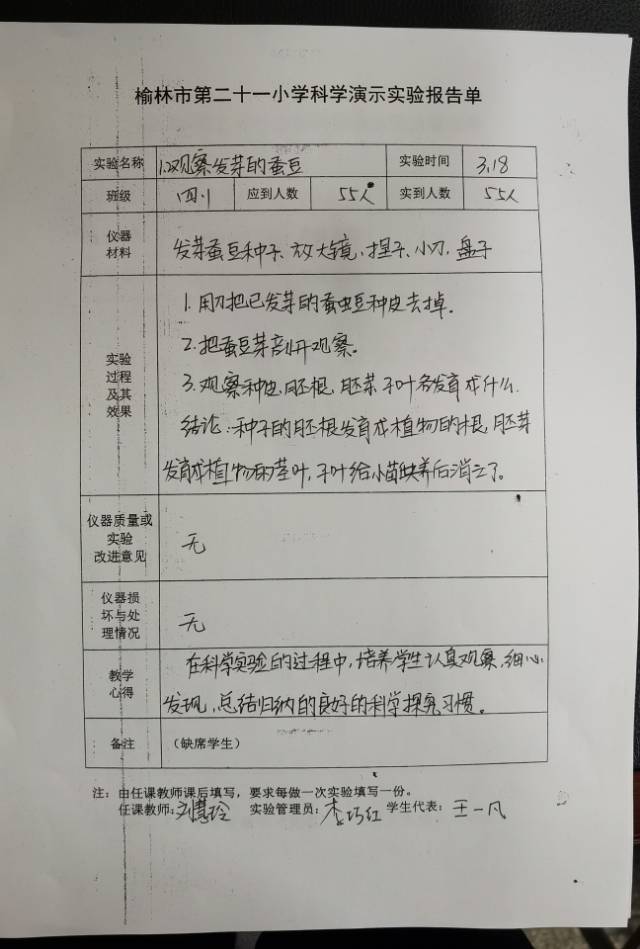 榆林市第二十一小学科学演示实验报告单
实验名称 1.观察发芽的蚕豆 实验时间 3.18
班级 四.1 应到人数 55人 实到人数 55人
仪器
材料
发芽蚕豆种子、放大镜、捏子、小刀、盘子
实验
过程
及其
效果
1.用刀把已发芽的蚕豆种皮去掉.
2.把蚕豆芽剖开观察。
3.观察种皮.胚根.胚芽.子叶各发育成什么.
结论:种子的胚根发育成植物的根,胚芽
发育成植物的茎叶,子叶给小苗供养后消失了。
仪器质量或
实验
改进意见
无
仪器损
坏与处
理情况
无
教学
心得
在科学实验的过程中,培养学生认真观察,细心
发现,总结归纳的良好的科学探究习惯。
备注 (缺席学生)
注:由任课教师课后填写,要求每做一次实验填写一份。
任课教师:刘慧玲 实验管理员:李巧红 学生代表:王一凡